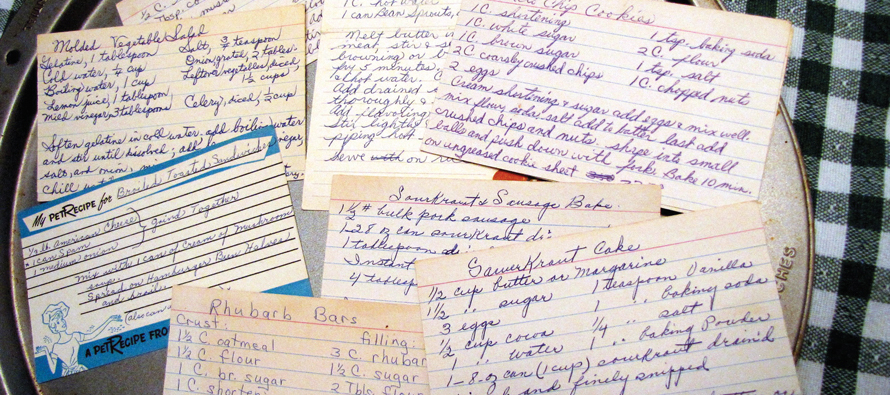 ½ C.
Molded Vegetable Salad
Gelatine, 1 tablespoon
Cold water, ¼ cup
Boiling water, 1 cup
Lemon juice, 1 tablespoon
Mild vinegar, 3 tablespoons
Salt, ¾ teaspoon
Onion, grated, 2 tables-
Leftover vegetables, diced,
1½ cups
Celery, diced, ½ cup
Soften gelatine in cold water, add boiling water
and stir until dissolved; add
vinegar,
salt, and onion,
Chill
1C. hot water
1 can Bean Sprouts,
Melt butter
meat, stir &
browning on
for 5 minutes
& hot water.
Add drained
thoroughly &
Add flavoring
Stir lightly &
piping hot
Serve with on
Chip Cookies
1C. shortening
1C. white sugar
1C brown sugar
2C. coarsely crushed chips
2 eggs
1 tsp. baking soda
2C. flour
1 tsp. salt
1C. chopped nuts
Cream shortening & sugar add eggs & mix well.
mix flour, soda, salt add to batter last add
crushed chips and nuts. shape into small
balls and push down with fork. Bake 10 min.
on ungreased cookie sheet
My PETRECIPE for Broiled Toasted Sandwiches
½ lb American Cheese
1 can Spam
1 medium onion
grind together
mix with 1 can of Cream of Mushroom
soup.
Spread on Hamburger Bun Halves
and broil
(also can
A PETRECIPE FROM
SourKraut & Sausage Bake
1½ # bulk pork sausage
1-28 oz can sourKraut
1 tablespoon
Instant
4 tablesp
SauerKraut Cake
½ cup butter or Margarine
1½ " sugar
3 eggs
½ cup cocoa
1 " water
1 teaspoon Vanilla
1 " baking soda
¼ " salt
1 " baking Powder
1-8-oz can (1 cup) sourKraut drain'd
and finely snipped
Rhubarb Bars
Crust:
1½ C. oatmeal
1½ C. flour
1 C. br. sugar
1 C. shorten
filling:
3 C. rhubar
1½ C. sugar
2 Tbls. flour